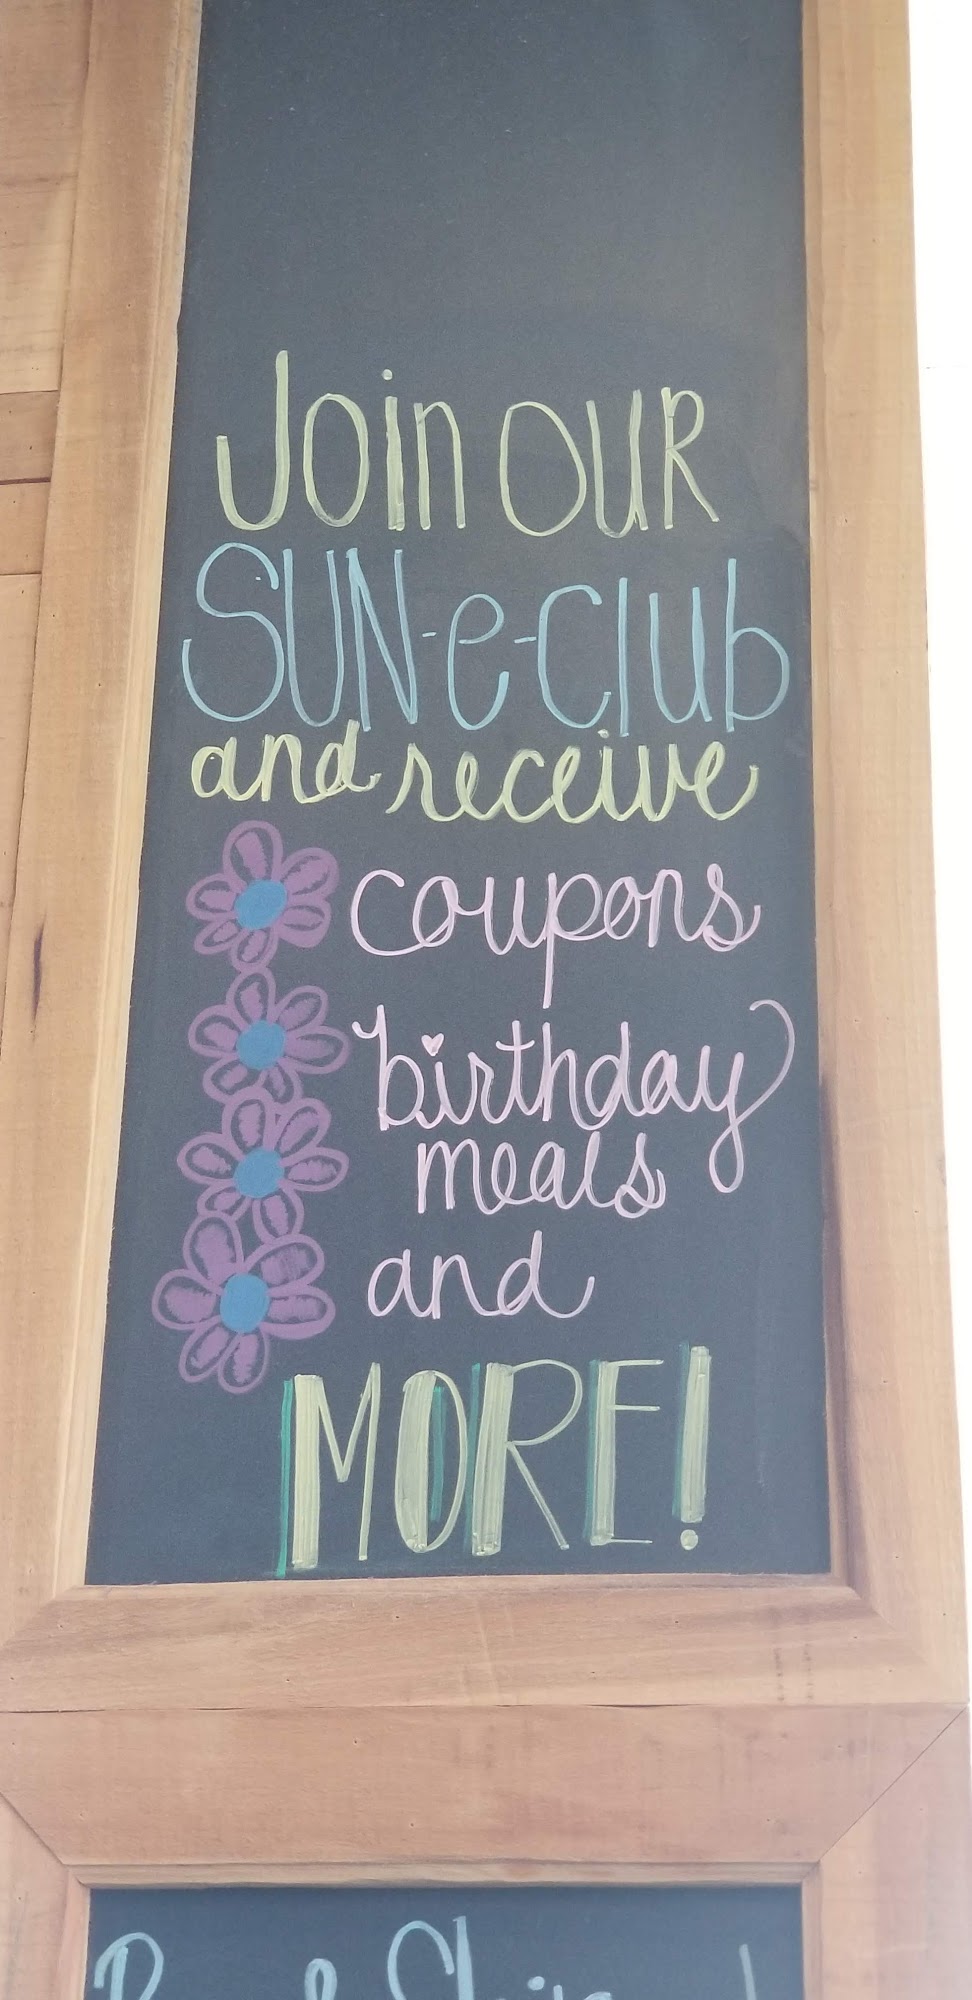 Join OUR
SUN-e-Club
and receive
coupons
birthday
meals
and
MORE!